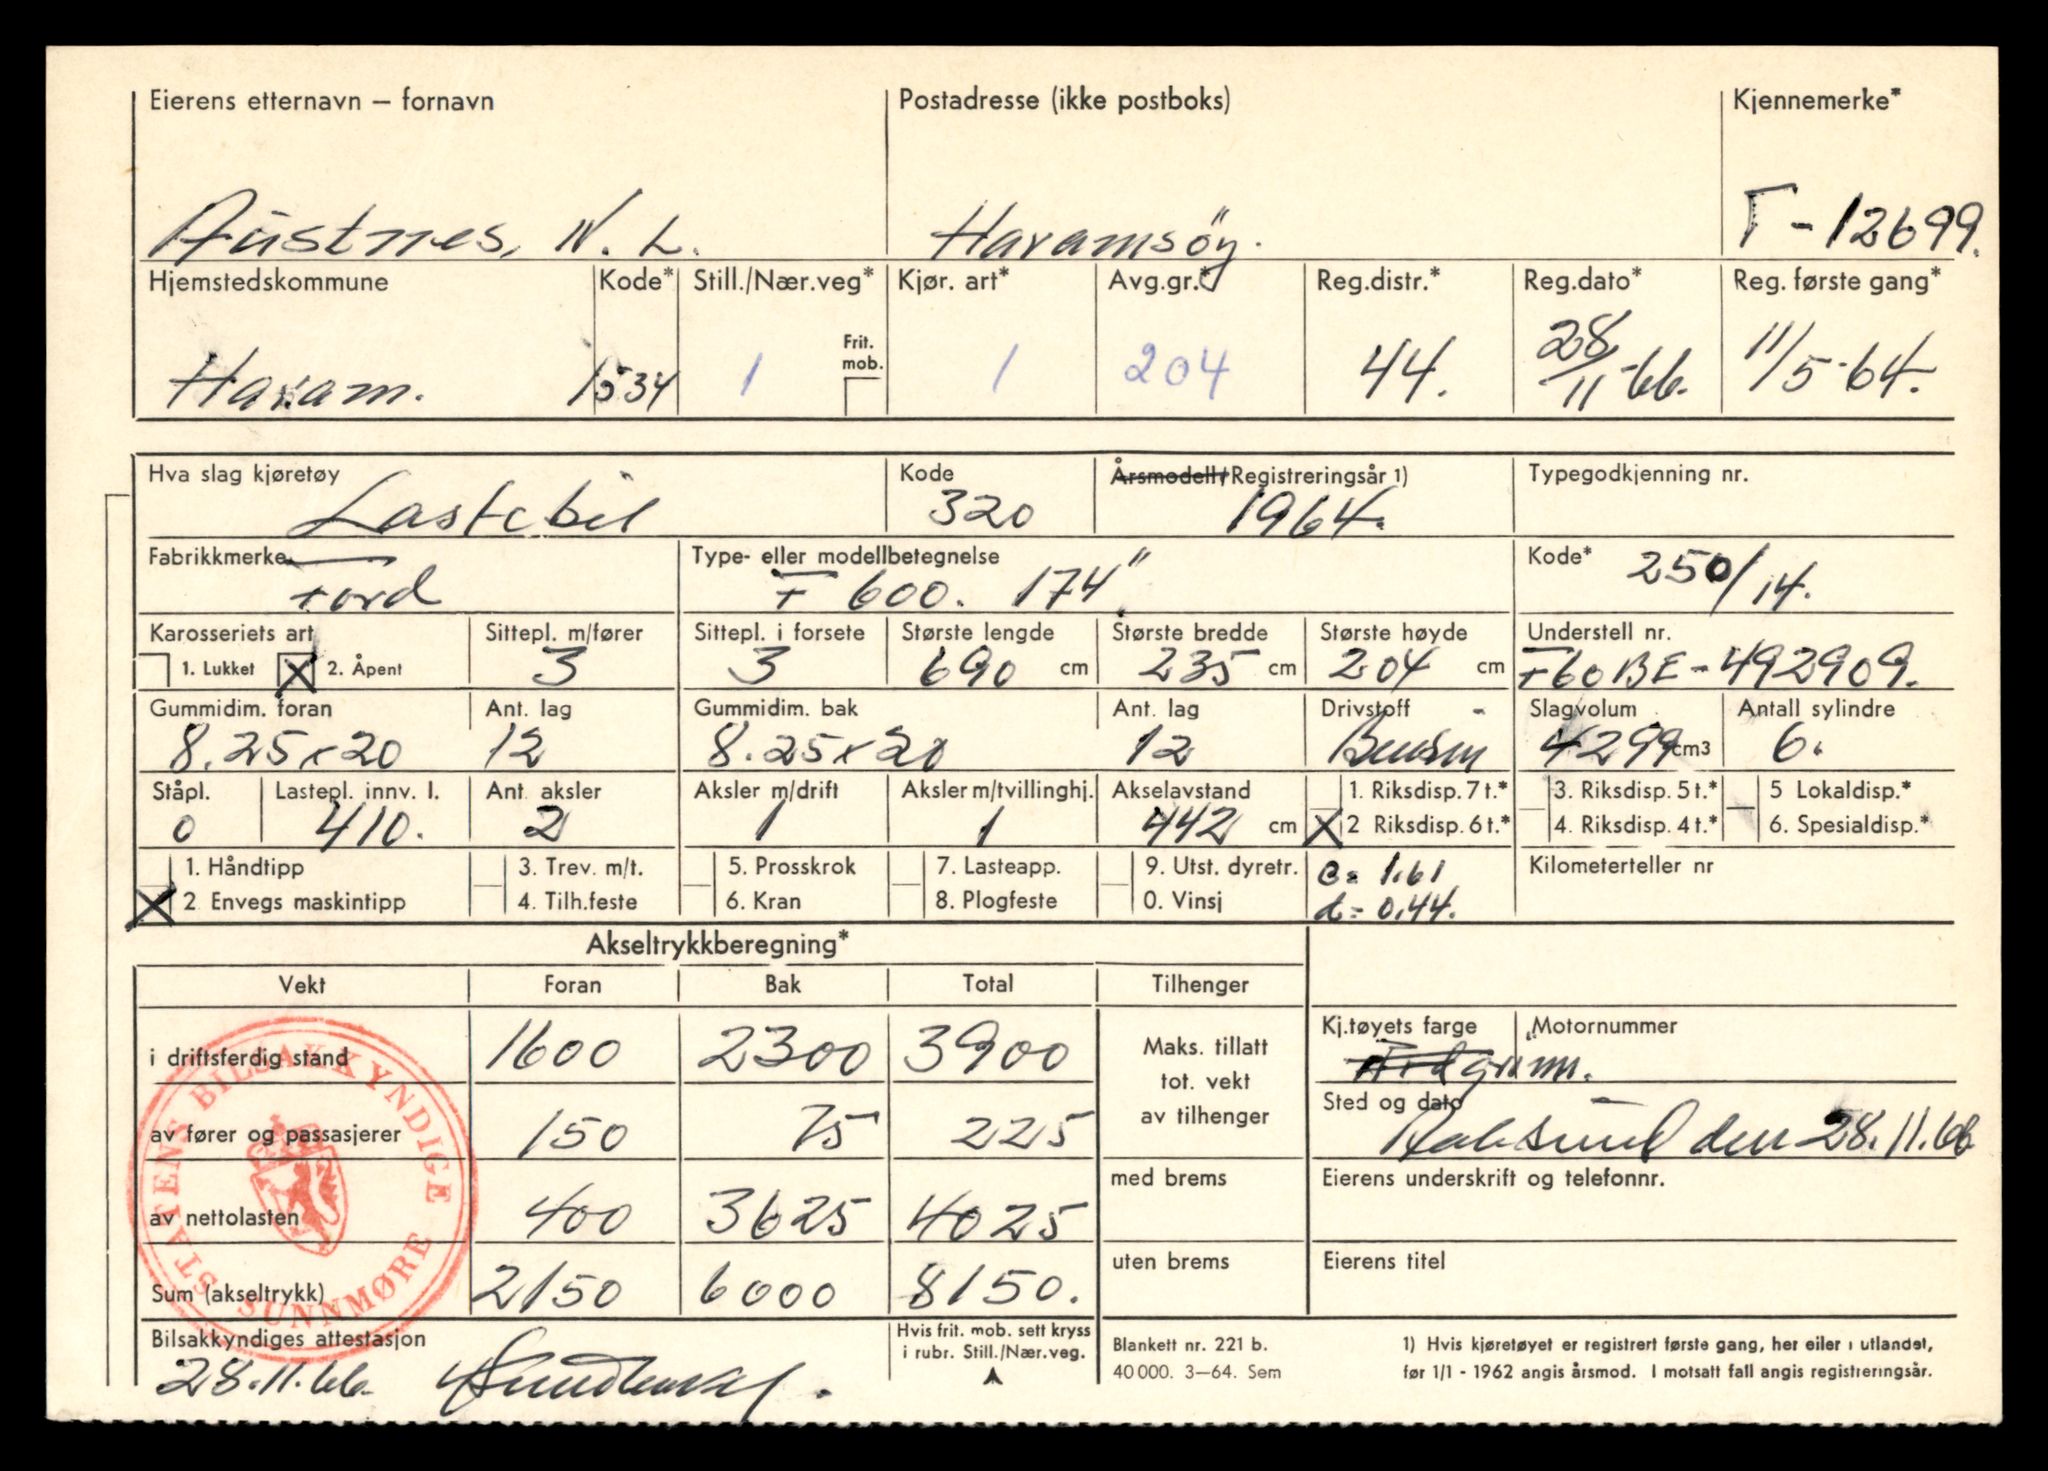 Eierens etternavn – fornavn Postadresse (ikke postboks) Kjennemerke*
Austnes, N. L. Haramsöy. T-12699.
Hjemstedskommune Kode* Still./Nær.veg* Kjør. art* Avg.gr.* Reg.distr.* Reg.dato* Reg. første gang*
Frit. mob.
Haram. 1534 1 1 204 44. 28/11-66. 11/5-64.
Hva slag kjøretøy Kode Årsmodell/Registreringsår 1) Typegodkjenning nr.
Lastebil 320 1964.
Fabrikkmerke Type- eller modellbetegnelse Kode*
Ford F 600. 174" 250/14.
Karosseriets art Sittepl. m/fører Sittepl. i forsete Største lengde Største bredde Største høyde Understell nr.
1. Lukket X 2. Åpent 3 3 690 cm 235 cm 204 cm F60BE-492909.
Gummidim. foran Ant. lag Gummidim. bak Ant. lag Drivstoff Slagvolum Antall sylindre
8.25x20 12 8.25x20 12 Bensin 4299 cm3 6.
Ståpl. Lastepl. innv. l. Ant. aksler Aksler m/drift Aksler m/tvillinghj. Akselavstand 1. Riksdisp. 7 t.* 3. Riksdisp. 5 t.* 5 Lokaldisp.*
0 410. 2 1 1 442 cm X 2 Riksdisp. 6 t.* 4. Riksdisp. 4 t.* 6. Spesialdisp.*
1. Håndtipp 3. Trev. m/t. 5. Prosskrok 7. Lasteapp. 9. Utst. dyretr. a= 1.61 Kilometerteller nr
X 2 Envegs maskintipp 4. Tilh.feste 6. Kran 8. Plogfeste 0. Vinsj d= 0.44.
Akseltrykkberegning*
Vekt Foran Bak Total Tilhenger
i driftsferdig stand 1600 2300 3900
Maks. tillatt
tot. vekt
av tilhenger
Kj.tøyets farge Motornummer
grønn.
av fører og passasjerer 150 75 225
Sted og dato
den 28.11.66
av nettolasten 400 3625 4025
med brems
Eierens underskrift og telefonnr.
Sum (akseltrykk) 2150 6000 8150.
uten brems
Eierens titel
STATENS BILSAKKYNDIGE SUNNMØRE
Bilsakkyndiges attestasjon
28.11.66.
Hvis frit. mob. sett kryss
i rubr. Still./Nær.veg.
Blankett nr. 221 b.
40 000. 3–64. Sem
1) Hvis kjøretøyet er registrert første gang, her eiler i utlandet,
før 1/1 - 1962 angis årsmod. I motsatt fall angis registreringsår.